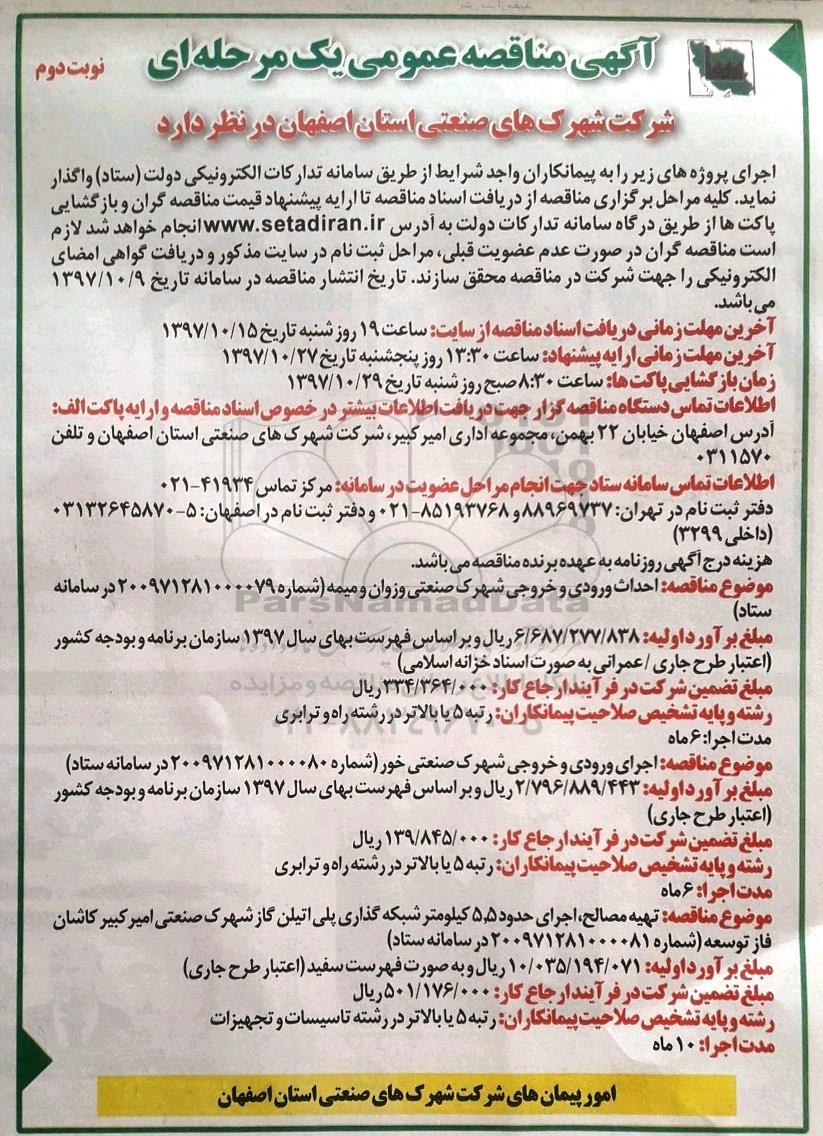 آگهی مناقصه عمومی یک مرحله ای
نوبت دوم
شرکت شهرک های صنعتی استان اصفهان در نظر دارد
اجرای پروژه های زیر را به پیمانکاران واجد شرایط از طریق سامانه تدارکات الکترونیکی دولت (ستاد) واگذار
نماید. کلیه مراحل برگزاری مناقصه از دریافت اسناد مناقصه تا ارایه پیشنهاد قیمت مناقصه گران و بازگشایی
پاکت ها از طریق درگاه سامانه تدارکات دولت به آدرس www.setadiran.ir انجام خواهد شد لازم
است مناقصه گران در صورت عدم عضویت قبلی، مراحل ثبت نام در سایت مذکور و دریافت گواهی امضای
الکترونیکی را جهت شرکت در مناقصه محقق سازند. تاریخ انتشار مناقصه در سامانه تاریخ ۱۳۹۷/۱۰/۹
می باشد.
آخرین مهلت زمانی دریافت اسناد مناقصه از سایت: ساعت ۱۹ روز شنبه تاریخ ۱۳۹۷/۱۰/۱۵
آخرین مهلت زمانی ارایه پیشنهاد: ساعت ۱۳:۳۰ روز پنجشنبه تاریخ ۱۳۹۷/۱۰/۲۷
زمان بازگشایی پاکت ها: ساعت ۸:۳۰ صبح روز شنبه تاریخ ۱۳۹۷/۱۰/۲۹
اطلاعات تماس دستگاه مناقصه گزار جهت دریافت اطلاعات بیشتر در خصوص اسناد مناقصه و ارایه پاکت الف:
آدرس اصفهان خیابان ۲۲ بهمن، مجموعه اداری امیرکبیر، شرکت شهرک های صنعتی استان اصفهان و تلفن
۰۳۱۱۵۷۰
اطلاعات تماس سامانه ستاد جهت انجام مراحل عضویت در سامانه: مرکز تماس ۴۱۹۳۴-۰۲۱
دفتر ثبت نام در تهران: ۸۸۹۶۹۷۳۷ و ۸۵۱۹۳۷۶۸-۰۲۱ و دفتر ثبت نام در اصفهان: ۵-۰۳۱۳۲۶۴۵۸۷۰
(داخلی ۳۲۹۹)
هزینه درج آگهی روزنامه به عهده برنده مناقصه می باشد.
موضوع مناقصه: احداث ورودی و خروجی شهرک صنعتی وزوان و میمه (شماره ۲۰۰۹۷۱۲۸۱۰۰۰۰۷۹ در سامانه
ستاد)
مبلغ برآورد اولیه: ۶/۶۸۷/۲۷۷/۸۳۸ ریال و بر اساس فهرست بهای سال ۱۳۹۷ سازمان برنامه و بودجه کشور
(اعتبار طرح جاری / عمرانی به صورت اسناد خزانه اسلامی)
مبلغ تضمین شرکت در فرآیند ارجاع کار: ۳۳۴/۳۶۴/۰۰۰ ریال
رشته و پایه تشخیص صلاحیت پیمانکاران: رتبه ۵ یا بالاتر در رشته راه و ترابری
مدت اجرا: ۶ ماه
موضوع مناقصه: اجرای ورودی و خروجی شهرک صنعتی خور (شماره ۲۰۰۹۷۱۲۸۱۰۰۰۰۸۰ در سامانه ستاد)
مبلغ برآورد اولیه: ۲/۷۹۶/۸۸۹/۴۴۳ ریال و بر اساس فهرست بهای سال ۱۳۹۷ سازمان برنامه و بودجه کشور
(اعتبار طرح جاری)
مبلغ تضمین شرکت در فرآیند ارجاع کار: ۱۳۹/۸۴۵/۰۰۰ ریال
رشته و پایه تشخیص صلاحیت پیمانکاران: رتبه ۵ یا بالاتر در رشته راه و ترابری
مدت اجرا: ۶ ماه
موضوع مناقصه: تهیه مصالح، اجرای حدود ۵٫۵ کیلومتر شبکه گذاری پلی اتیلن گاز شهرک صنعتی امیرکبیر کاشان
فاز توسعه (شماره ۲۰۰۹۷۱۲۸۱۰۰۰۰۸۱ در سامانه ستاد)
مبلغ برآورد اولیه: ۱۰/۰۳۵/۱۹۴/۰۷۱ ریال و به صورت فهرست سفید (اعتبار طرح جاری)
مبلغ تضمین شرکت در فرآیند ارجاع کار: ۵۰۱/۱۷۶/۰۰۰ ریال
رشته و پایه تشخیص صلاحیت پیمانکاران: رتبه ۵ یا بالاتر در رشته تاسیسات و تجهیزات
مدت اجرا: ۱۰ ماه
امور پیمان های شرکت شهرک های صنعتی استان اصفهان
ParsNamadData